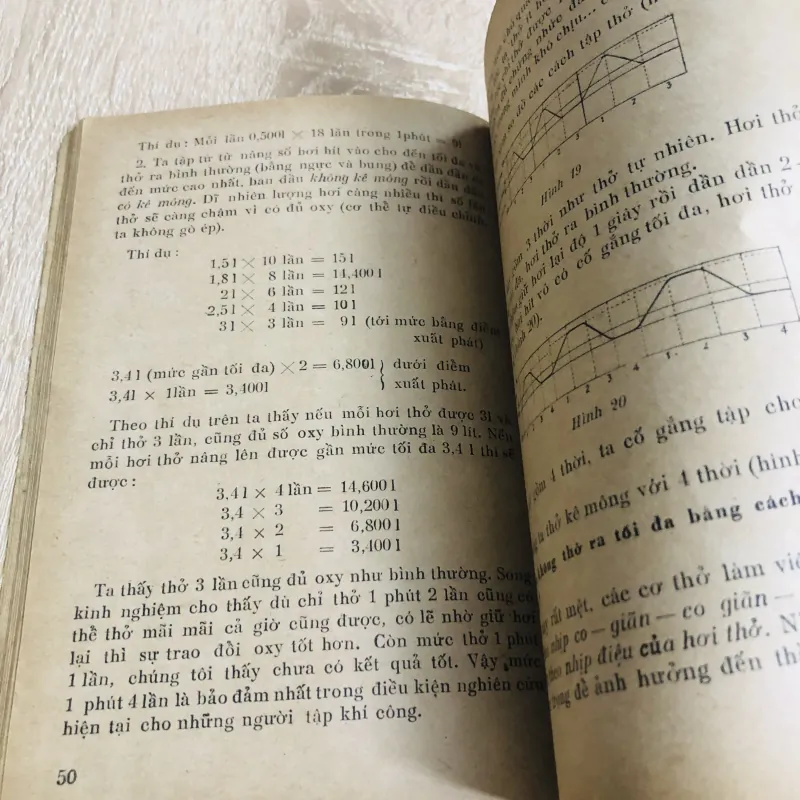 Thí dụ : Mỗi lần 0,500l × 18 lần trong 1 phút = 9l
2. Ta tập từ từ nâng số hơi hít vào cho đến tối đa và
thở ra bình thường (bằng ngực và bụng) để dần dần
đến mức cao nhất, ban đầu không kê mông rồi dần dần
có kê mông. Dĩ nhiên lượng hơi càng nhiều thì số lần
thở sẽ càng chậm vì có đủ oxy (cơ thể tự điều chỉnh,
ta không gò ép).
Thí dụ :
1,5l × 10 lần = 15l
1,8l × 8 lần = 14,400l
2l × 6 lần = 12l
2,5l × 4 lần = 10l
3l × 3 lần = 9l (tới mức bằng điểm
xuất phát)
3,4l (mức gần tối đa) × 2 = 6,800l } dưới điểm
3,4l × 1 lần = 3,400l } xuất phát.
Theo thí dụ trên ta thấy nếu mỗi hơi thở được 3l và
chỉ thở 3 lần, cũng đủ số oxy bình thường là 9 lít. Nếu
mỗi hơi thở nâng lên được gần mức tối đa 3,4 l thì sẽ
được :
3,4l × 4 lần = 14,600l
3,4 × 3 = 10,200l
3,4 × 2 = 6,800l
3,4 × 1 = 3,400l
Ta thấy thở 3 lần cũng đủ oxy như bình thường. Song
kinh nghiệm cho thấy dù chỉ thở 1 phút 2 lần cũng có
thể thở mãi mãi cả giờ cũng được, có lẽ nhờ giữ hơi
lại thì sự trao đổi oxy tốt hơn. Còn mức thở 1 phút
1 lần, chúng tôi thấy chưa có kết quả tốt. Vậy mức
1 phút 4 lần là bảo đảm nhất trong điều kiện nghiên cứu
hiện tại cho những người tập khí công.
50
thở được
chứng nhức đầ
mình khó chịu...
sơ đồ các cách tập thở (h
1 2 3 4 1 2 3
Hình 19
3 thời như thở tự nhiên. Hơi thở
đa, hơi thở ra bình thường.
giữ hơi lại độ 1 giây rồi dần dần 2-
hơi hít vô có cố gắng tối đa, hơi thở
20).
1 2 3 4 1 2 3 4
Hình 20
gồm 4 thời, ta cố gắng tập cho
ta thở kê mông với 4 thời (hình
không thở ra tối đa bằng cách
rất mệt, các cơ thở làm việ
nhịp co — giãn — co giãn —
theo nhịp điệu của hơi thở. N
trong để ảnh hưởng đến th